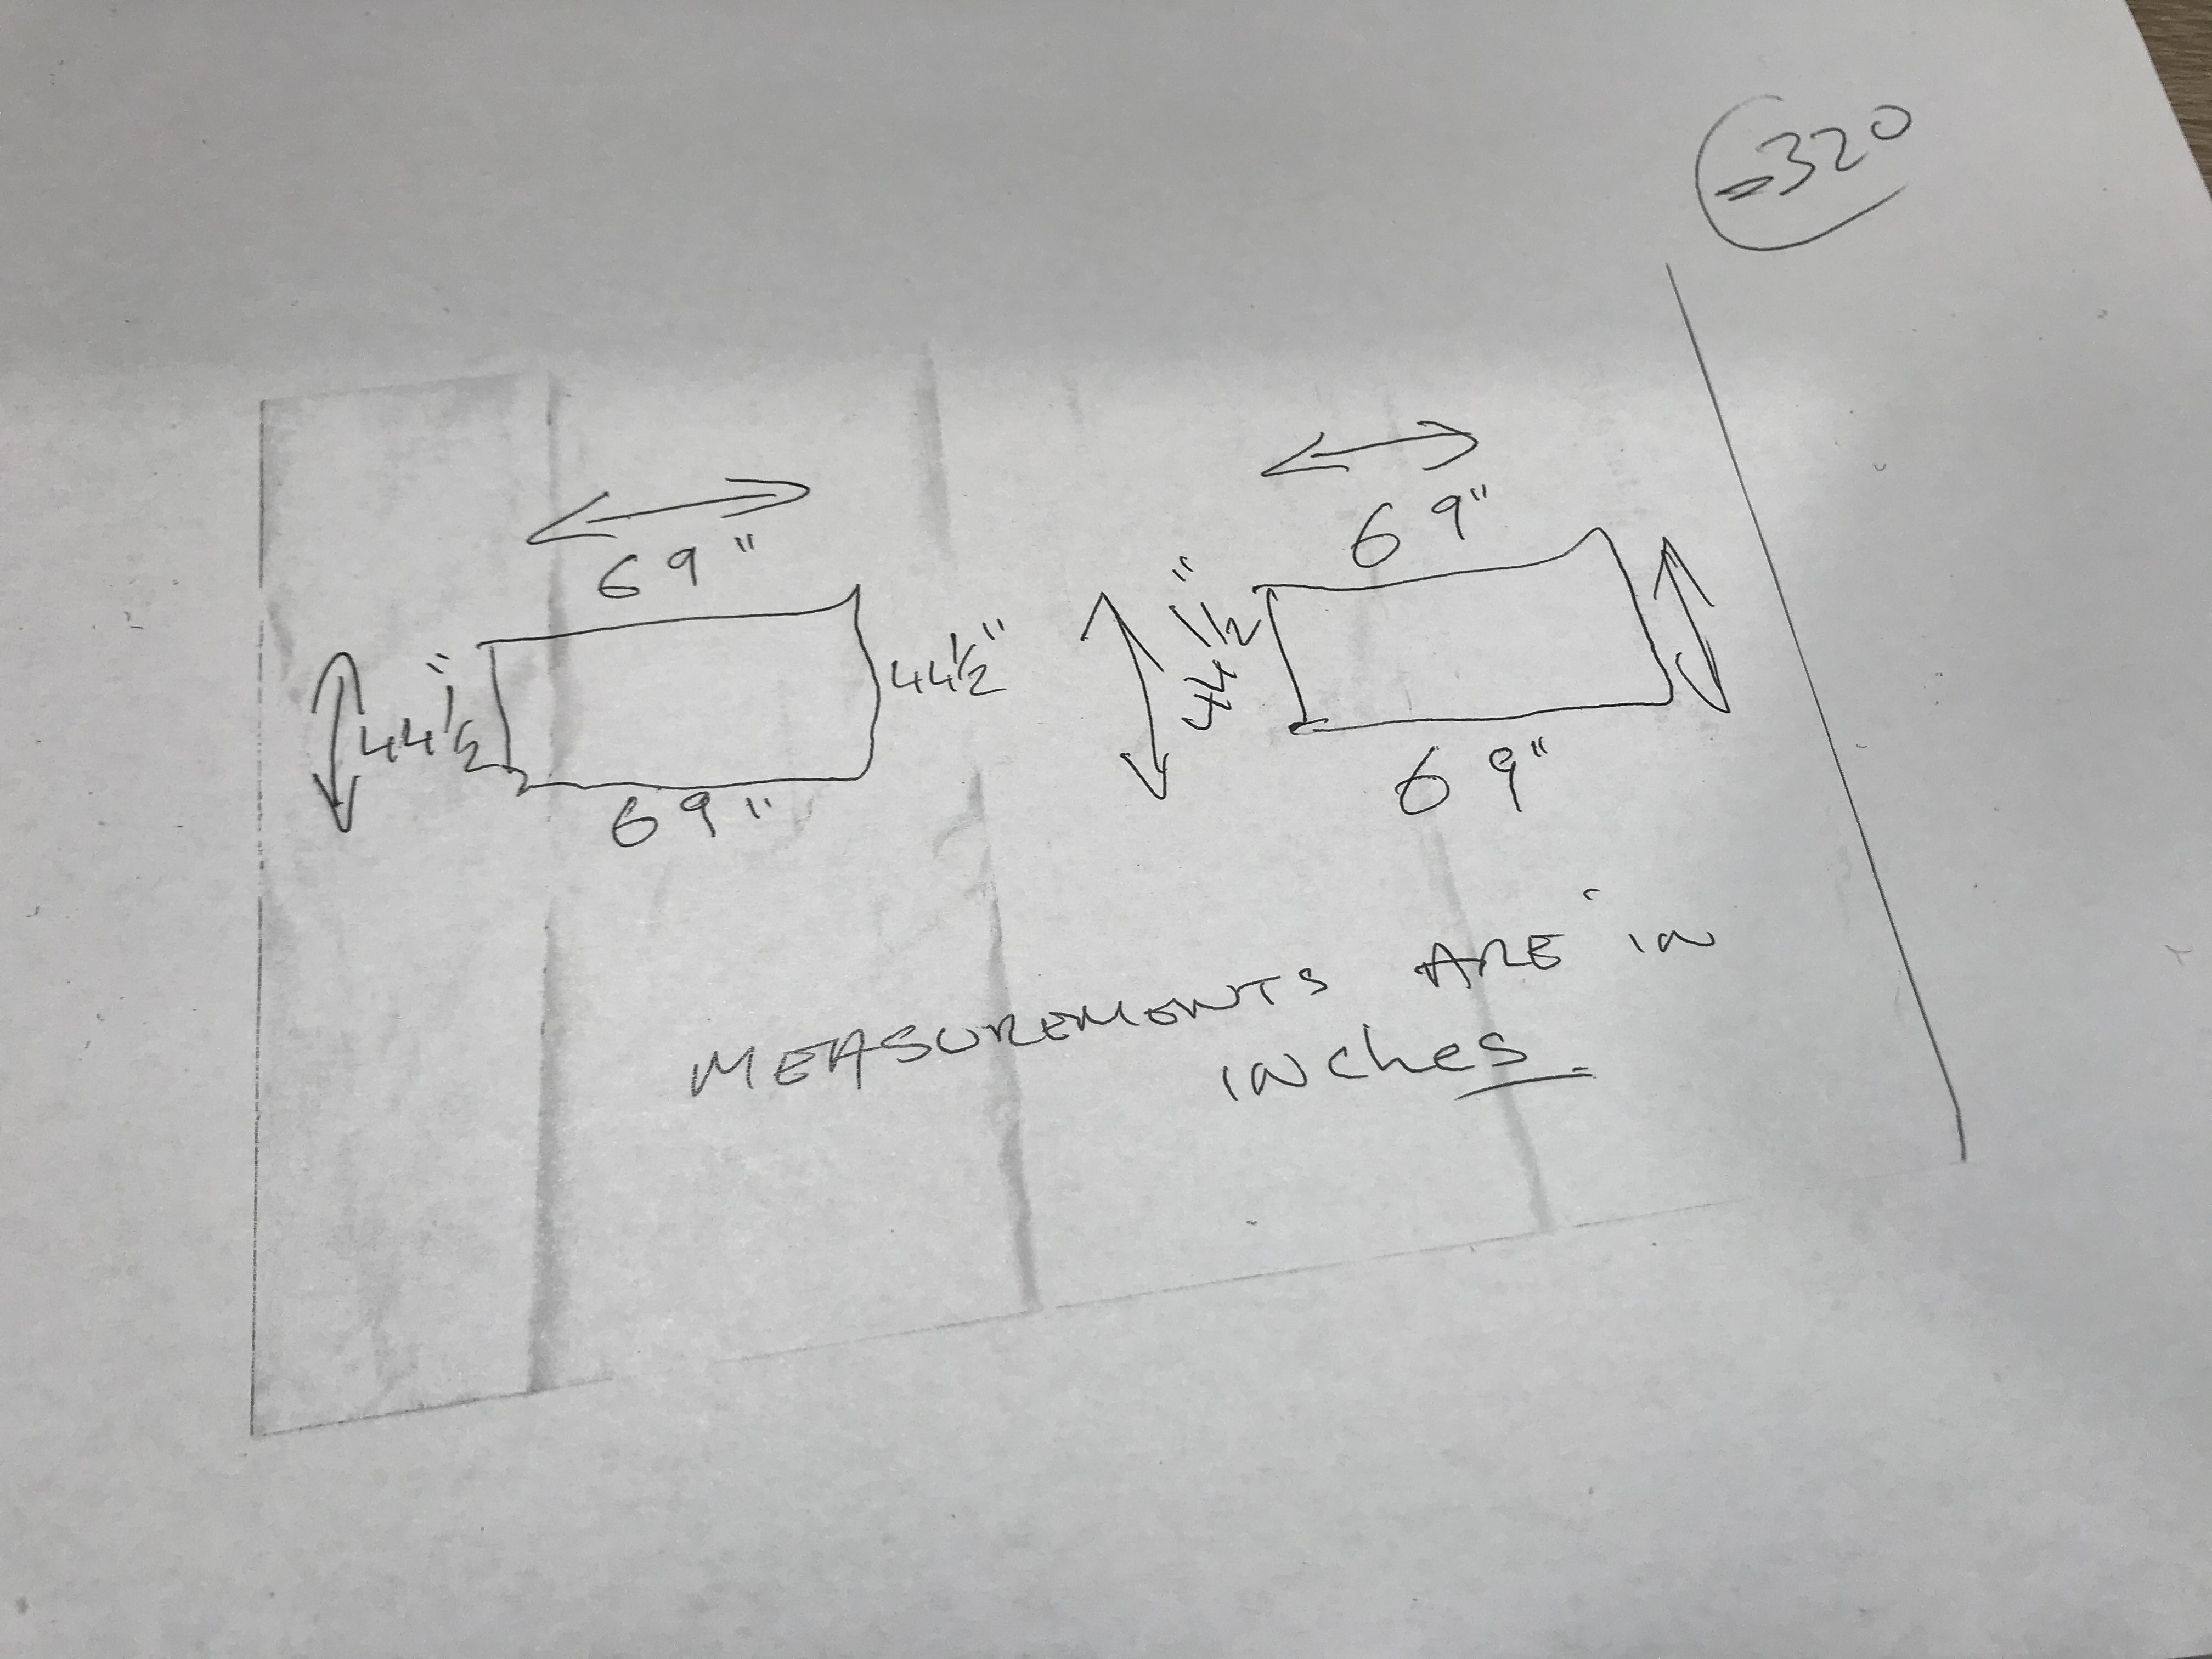 =320
69"
69"
44½"
44½"
44 1/2"
69"
69"
MEASUREMENTS ARE IN
INCHES.